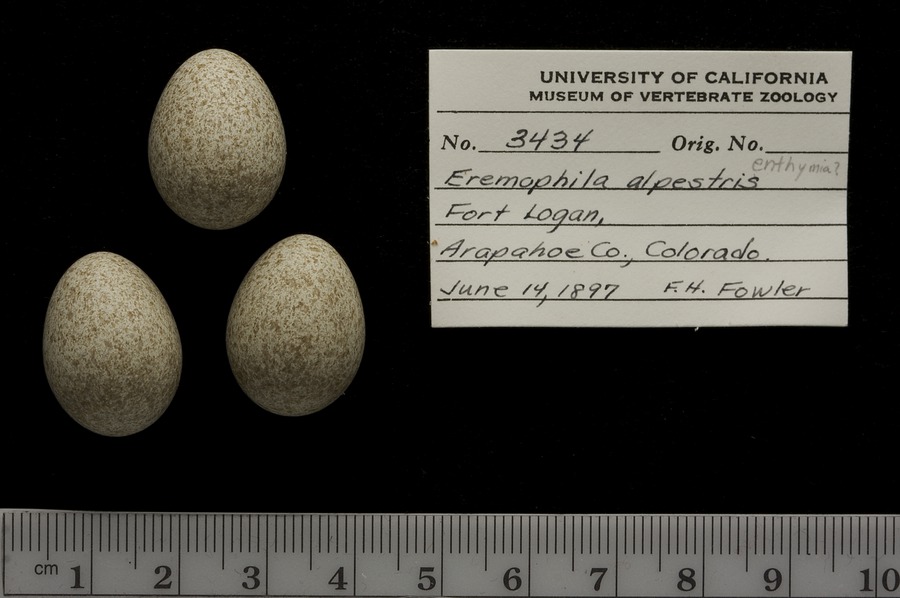 UNIVERSITY OF CALIFORNIA
MUSEUM OF VERTEBRATE ZOOLOGY
No. 3434 Orig. No.
enthymia?
Eremophila alpestris
Fort Logan,
Arapahoe Co., Colorado.
June 14, 1897 F.H. Fowler
cm 1 2 3 4 5 6 7 8 9 10